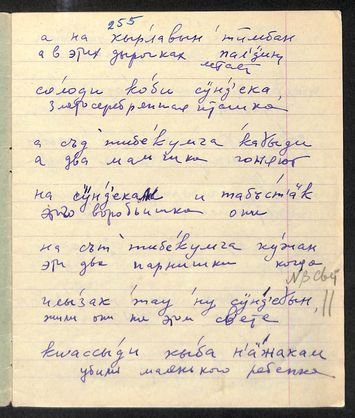 255
а на кыр́лавын т́имбан
а в этих дырочках пал'д́ин
летает
со́лоди ко́би с́ӱнд́ека
Златосеребренная пташка
а съд тибе́кумга ка́быди
а два мальчика гоняют
на с́ӱнд́екам и табъстʼäк
этого воробьишка они
на съ́т тибе́кумга ку́жан
эти два парнишки когда
илы́зак тау ну
жили они на этом свете
NB свет
ква́ссыди кы́ба
убили маленького ребенка